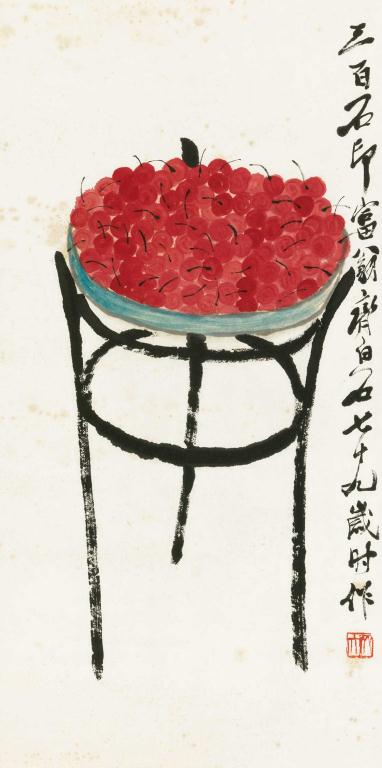 三百石印富翁齊白石七十九歲时作